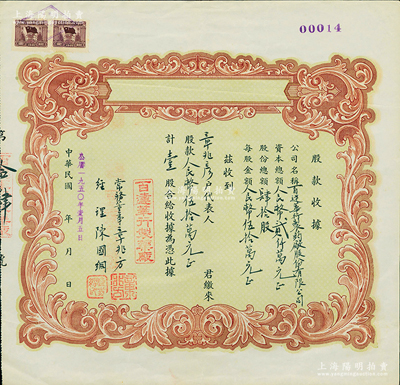 00014
股款收據
公司名稱百達華行製藥廠股份有限公司
資本總額人民幣貳仟萬元正
股份總額肆拾股
每股金額人民幣伍拾萬元正
茲收到
章兆彥代表人 君繳來
股款人民幣伍拾萬元正
計壹股合給收據為憑此據
百達華行製藥廠
常務董事章兆方
經理陳國綱
公曆一九五〇年 月 日
中華民國 年 月 日
上海陽明拍賣